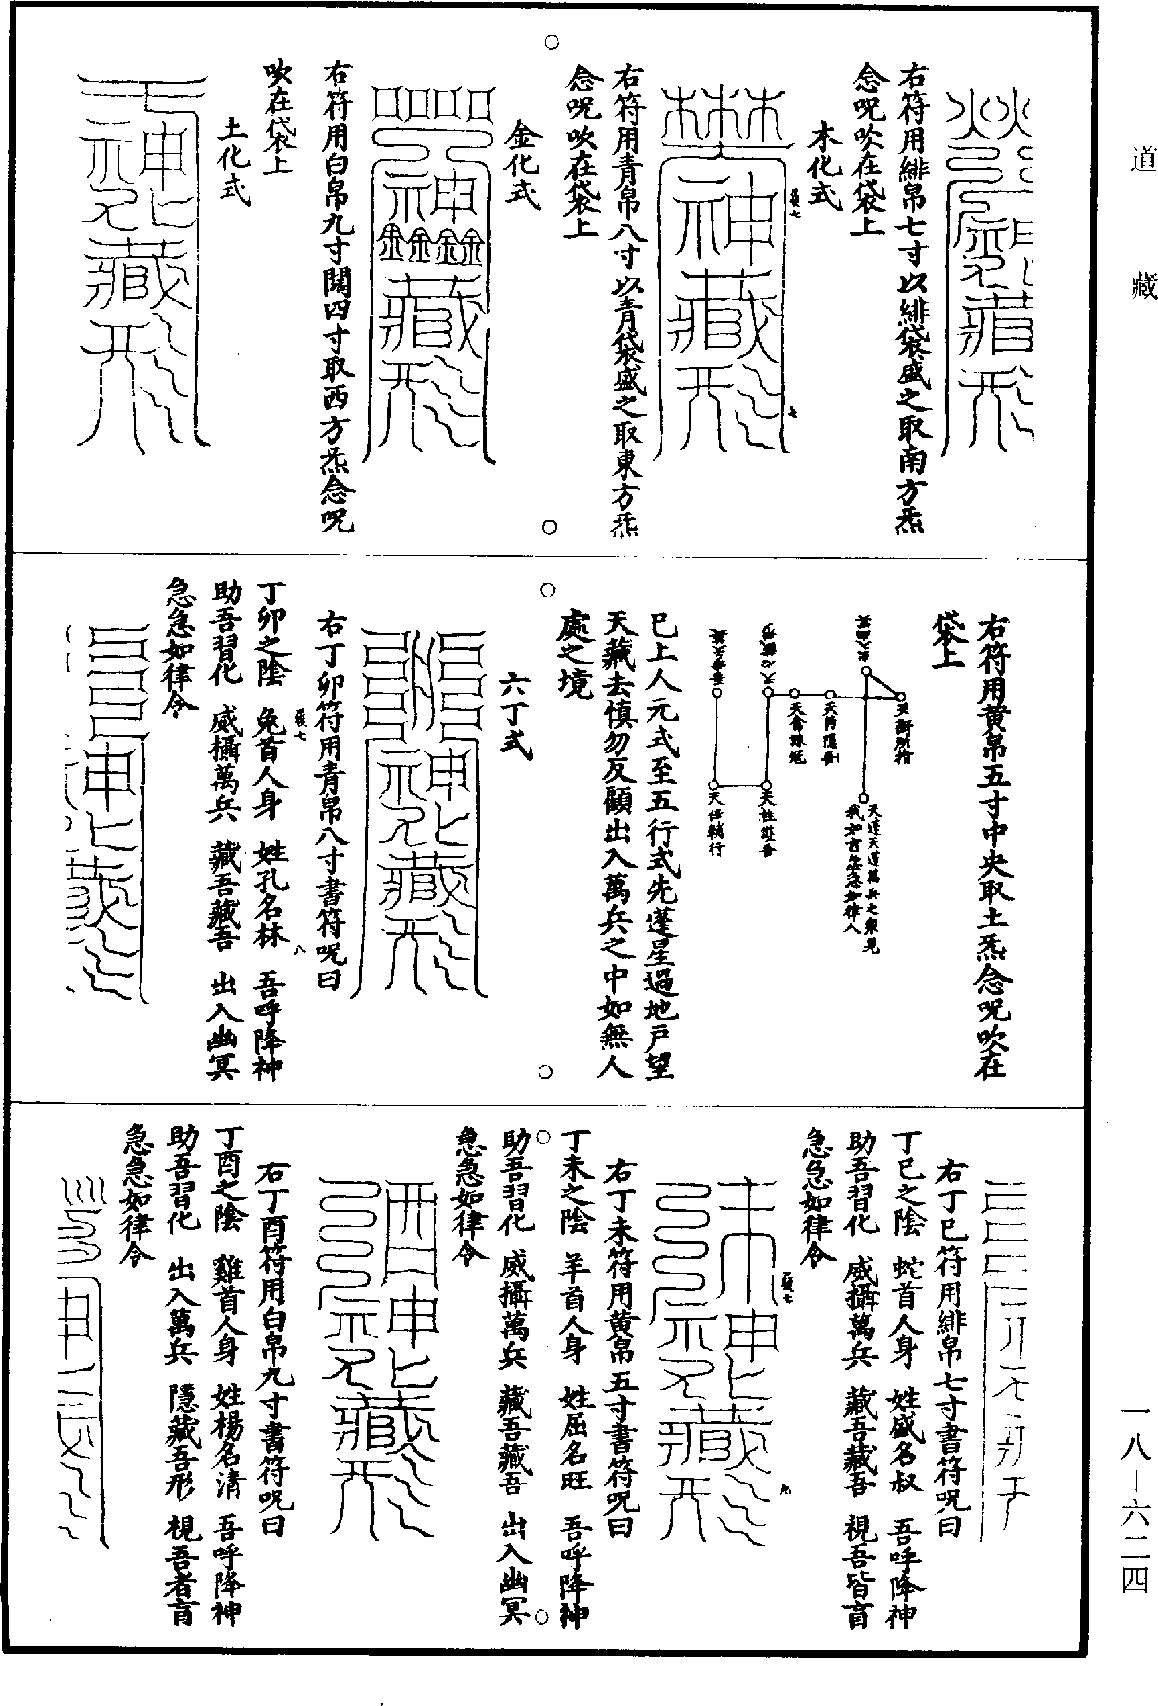 道藏
右符用緋帛七寸以緋袋盛之取南方炁
念呪吹在袋上
木化式
右符用青帛八寸以青袋盛之取東方炁
念呪吹在袋上
金化式
右符用白帛九寸闊四寸取西方炁念呪
吹在袋上
土化式
右符用黄帛五寸中央取土炁念呪吹在
袋上
天任輔行
已上人元式至五行式先蓬星過地戸望
天藏去慎勿反顧出入萬兵之中如無人
處之境
六丁式
右丁卯符用青帛八寸書符呪曰
丁卯之陰 兔首人身 姓孔名林 吾呼降神
助吾習化 威攝萬兵 藏吾藏吾 出入幽冥
急急如律令
右丁巳符用緋帛七寸書符呪曰
丁巳之陰 蛇首人身 姓盛名叔 吾呼降神
助吾習化 威攝萬兵 藏吾藏吾 視吾皆盲
急急如律令
右丁未符用黄帛五寸書符呪曰
丁未之陰 羊首人身 姓屈名旺 吾呼降神
助吾習化 威攝萬兵 藏吾藏吾 出入幽冥
急急如律令
右丁酉符用白帛九寸書符呪曰
丁酉之陰 雞首人身 姓楊名清 吾呼降神
助吾習化 出入萬兵 隱藏吾形 視吾者盲
急急如律令
一八—六二四